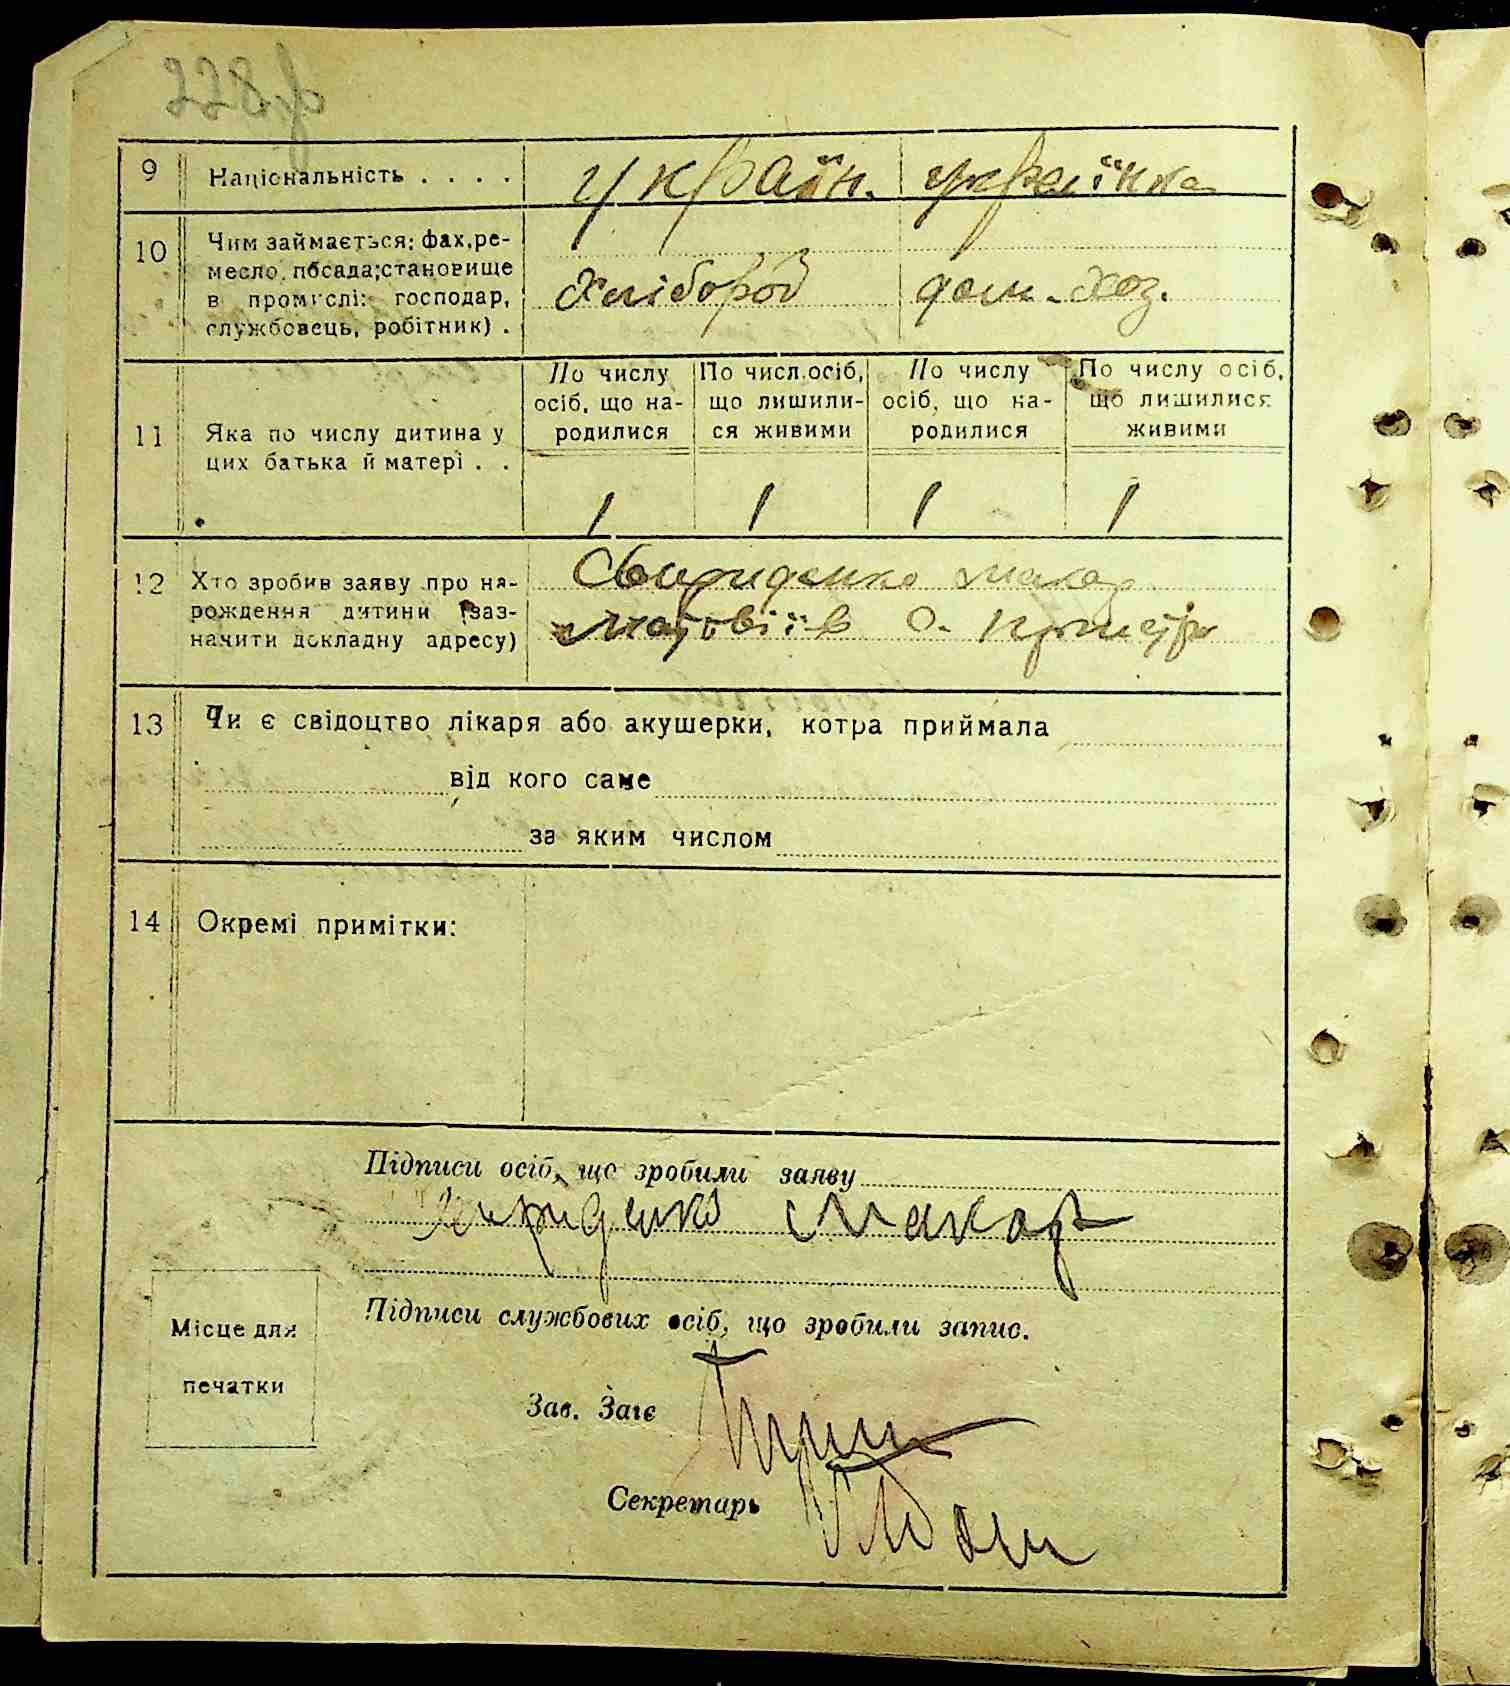 9 Національність . . . . україн. українка
10 Чим займається: фах, ре-
месло, посада; становище
в промислі: господар,
службовець, робітник) .
хлібороб дом. хоз.
По числу осіб, що на-родилися По числ. осіб, що лишили-ся живими По числу осіб, що на-родилися По числу осіб, що лишилися живими
11 Яка по числу дитина у
цих батька й матері . .
1 1 1 1
12 Хто зробив заяву про на-
рождення дитини (заз-
начити докладну адресу)
Свириденко Макар
Матвіїв с.
13 Чи є свідоцтво лікаря або акушерки, котра приймала
від кого саме
за яким числом
14 Окремі примітки:
Підписи осіб, що зробили заяву
Свириденко Макар
Підписи службових осіб, що зробили запис.
Місце для
печатки
Зав. Загс
Секретарь